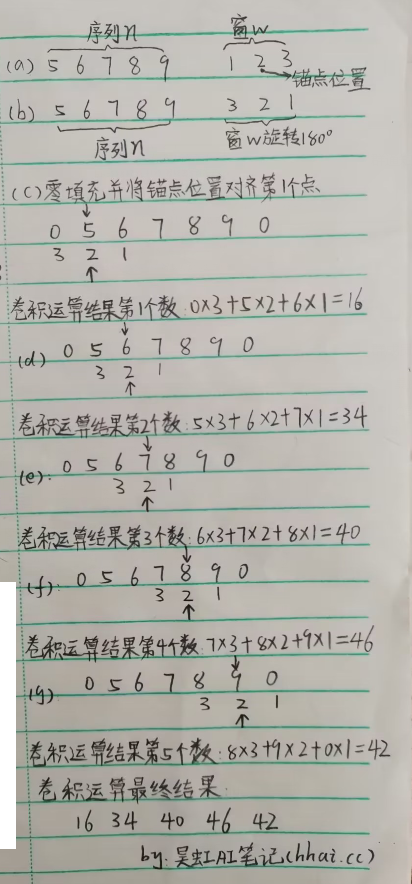 序列n 窗w
(a) 5 6 7 8 9 1 2 3
锚点位置
(b) 5 6 7 8 9 3 2 1
序列n 窗w旋转180°
(c) 零填充并将锚点位置对齐第1个点
0 5 6 7 8 9 0
3 2 1
卷积运算结果第1个数:0×3+5×2+6×1=16
(d) 0 5 6 7 8 9 0
3 2 1
卷积运算结果第2个数:5×3+6×2+7×1=34
(e): 0 5 6 7 8 9 0
3 2 1
卷积运算结果第3个数:6×3+7×2+8×1=40
(f): 0 5 6 7 8 9 0
3 2 1
卷积运算结果第4个数:7×3+8×2+9×1=46
(g) 0 5 6 7 8 9 0
3 2 1
卷积运算结果第5个数:8×3+9×2+0×1=42
卷积运算最终结果:
16 34 40 46 42
by:昊虹AI笔记(hhai.cc)